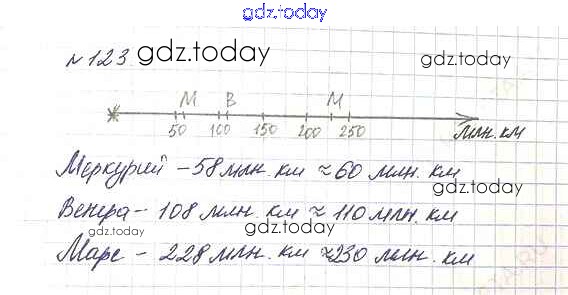 gdz.today
№ 123 gdz.today gdz.today
М В М
50 100 150 200 250
млн. км
Меркурий – 58 млн. км ≈ 60 млн. км
gdz.today
Венера – 108 млн. км ≈ 110 млн. км
gdz.today
Марс – 228 млн. км ≈ 230 млн. км